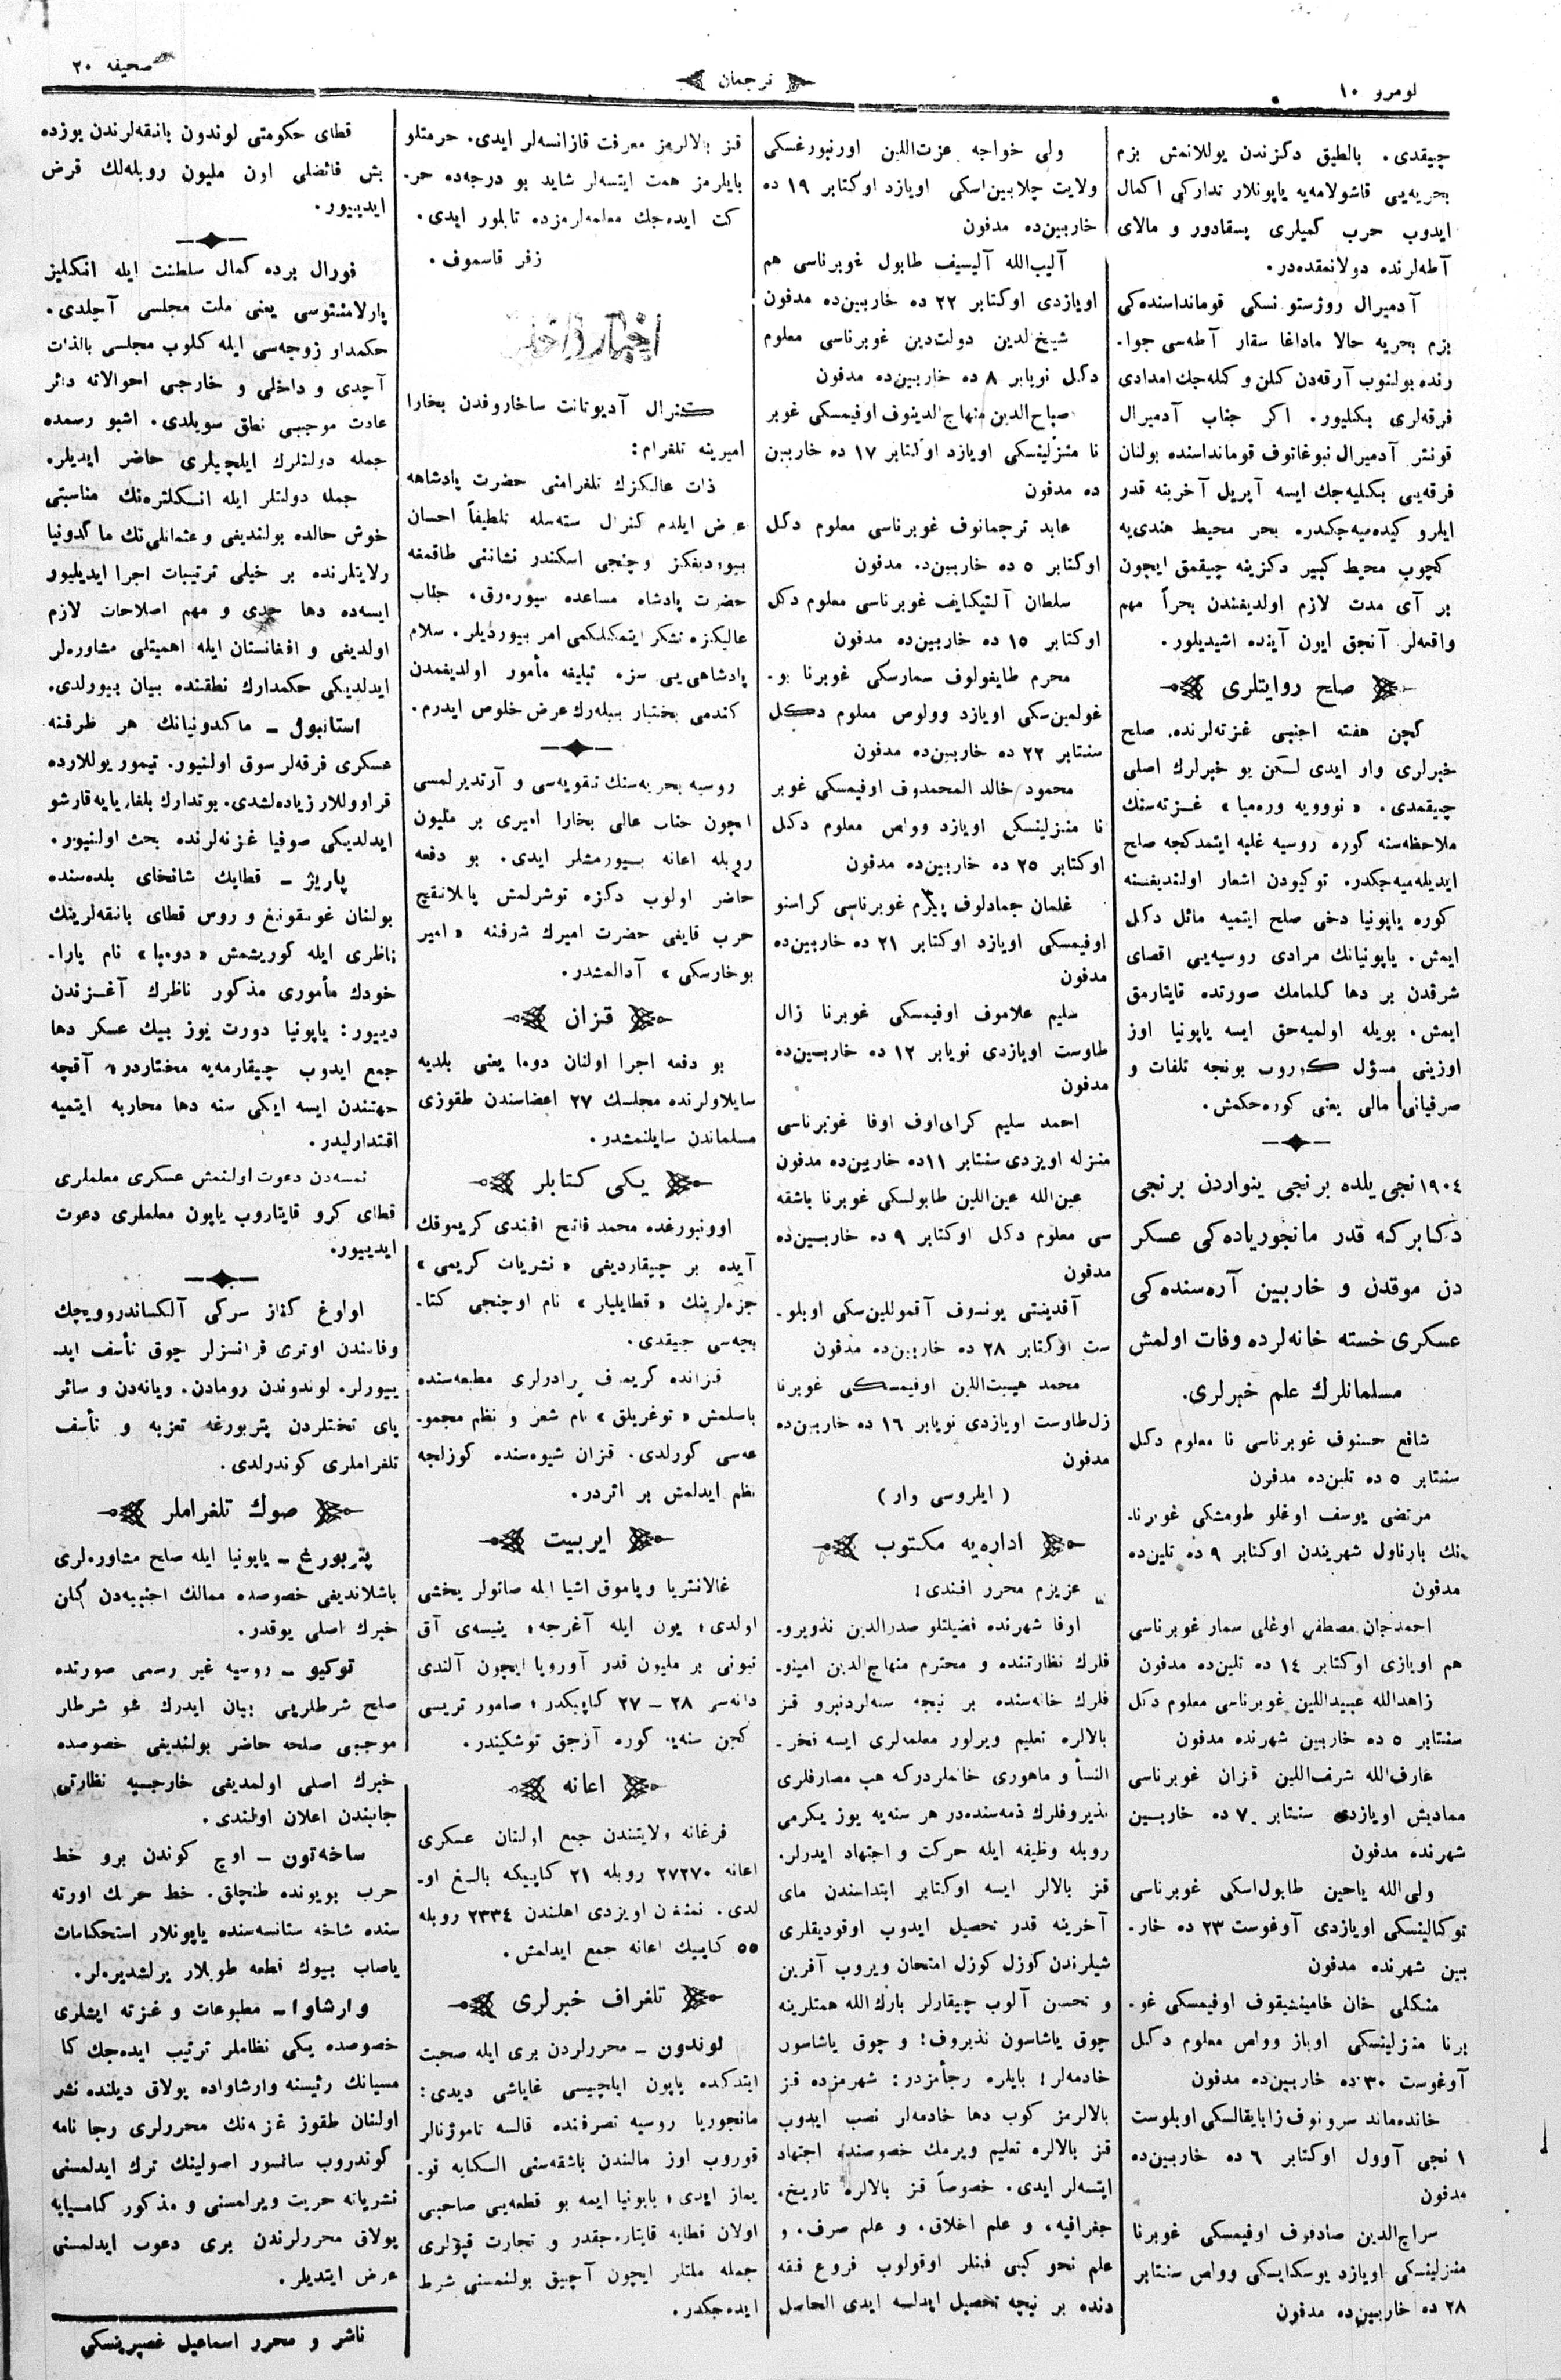 لومرو ١٠
ترجمان
صحیفه ٢٠
چیقدی. بالطیق دکزندن یوللانمش بزم
بحریه‌یی قاشولامه‌یه یاپونلار تدارکی اکمال
ایدوب حرب کمیلری پسقادور و مالای
آطه‌لرنده دولانمقده‌در.
آدمیرال روژستونسکی قومانداسنده‌کی
بزم بحریه حالا ماداغاسقار آطه‌سی جوا-
رنده بولنوب آرقه‌دن کلن و کله‌جك امدادی
فرقه‌لری بکلیور. اکر جناب آدمیرال
قونتر آدمیرال نبوغاتوف قومانداسنده بولنان
فرقه‌یی بکلیه‌جك ایسه آپریل آخرینه قدر
ایلرو کیده‌میه‌جکدر. بحر محیط هندی‌یه
کچوب محیط کبیر دکزینه چیقمق ایچون
بر آی مدت لازم اولدیغندن بحراً مهم
واقعه‌لر آنجق ایون آینده اشیدیلور.
صلح روایتلری
کچن هفته اجنبی غزته‌لرنده صلح
خبرلری وار ایدی لکن بو خبرلرك اصلی
چیقمدی. «نوویه وره‌میا» غزته‌سنك
ملاحظه‌سنه کوره روسیه غلبه ایتمدکجه صلح
ایدیله‌میه‌جکدر. توکیودن اشعار اولندیغنه
کوره یاپونیا دخی صلح ایتمیه مائل دکل
ایمش. یاپونیانك مرادی روسیه‌یی اقصای
شرقدن بر دها کلمامك صورتده قایتارمق
ایمش. بویله اولمیه‌جق ایسه یاپونیا اوز
اوزینی مسؤل کوروب بونجه تلفات و
صرفیاتی مالی یعنی کوره‌جکمش.
١٩٠٤نجی یلده برنجی ینواردن برنجی
دکابرکه قدر مانجوریاده‌کی عسکر
دن موقدن و خاربین آره‌سنده‌کی
عسکری خسته خانه‌لرده وفات اولمش
مسلمانلرك علم خبرلری.
شافع حسنوف غوبرناسی نا معلوم دکل
سنتابر ٥ ده تلین‌ده مدفون
مرتضی یوسف اوغلو طومشکی غوبرنا-
نك بارناول شهریندن اوکتابر ٩ ده تلین‌ده
مدفون
احمدجان مصطفی اوغلی سمار غوبرناسی
هم اویازی اوکتابر ١٤ ده تلین‌ده مدفون
زاهدالله عبیداللین غوبرناسی معلوم دکل
سنتابر ٥ ده خاربین شهرنده مدفون
عارف‌الله شرف‌اللین قزان غوبرناسی
ممادیش اویازدی سنتابر ٧ ده خاربین
شهرنده مدفون
ولی‌الله یاحین طابول‌اسکی غوبرناسی
توکالینسکی اویازدی آوغوست ٢٣ ده خار-
بین شهرنده مدفون
منکلی خان خامینشیقوف اوفیمسکی غو-
برنا منزلینسکی اویاز وولص معلوم دکل
آوغوست ٣٠ ده خاربین‌ده مدفون
خانده‌ماند سرونوف زابایقالسکی اوبلوست
١ نجی آوول اوکتابر ٦ ده خاربین‌ده
مدفون
سراج‌الدین صادقوف اوفیمسکی غوبرنا
منزلینسکی اویازد یوسکدایسکی وولص سنتابر
٢٨ ده خاربین‌ده مدفون
ولی خواجه عزت‌اللین اورنبورغسکی
ولایت چلابین‌اسکی اویازد اوکتابر ١٩ ده
خاربین‌ده مدفون
آلیب‌الله آلیسیف طابول غوبرناسی هم
اویازدی اوکتابر ٢٢ ده خاربین‌ده مدفون
شیخ‌الدین دولت‌دین غوبرناسی معلوم
دکل نویابر ٨ ده خاربین‌ده مدفون
صباح‌الدین منهاج‌الدینوف اوفیمسکی غوبر
نا منزلینسکی اویازد اوکتابر ١٧ ده خاربین
ده مدفون
عابد ترجمانوف غوبرناسی معلوم دکل
اوکتابر ٥ ده خاربین‌ده مدفون
سلطان آلتیکایف غوبرناسی معلوم دکل
اوکتابر ١٥ ده خاربین‌ده مدفون
محرم طایفولوف سمارسکی غوبرنا بو-
غولمین‌سکی اویازد وولوص معلوم دکل
سنتابر ٢٢ ده خاربین‌ده مدفون
محمود خالد المحمدوف اوفیمسکی غوبر
نا منزلینسکی اویازد وولص معلوم دکل
اوکتابر ٢٥ ده خاربین‌ده مدفون
غلمان جمادلوف پیرم غوبرناسی کراسنو
اوفیمسکی اویازد اوکتابر ٢١ ده خاربین‌ده
مدفون
سلیم علاموف اوفیمسکی غوبرنا زال
طاوست اویازدی نویابر ١٢ ده خاربین‌ده
مدفون
احمد سلیم کرای‌اوف اوفا غوبرناسی
منزله اویزدی سنتابر ١١ده خاربین‌ده مدفون
عین‌الله عین‌اللین طابولسکی غوبرنا باشقه
سی معلوم دکل اوکتابر ٩ ده خاربین‌ده
مدفون
آقدینتی یونسوف آقموللین‌سکی اوبلو-
ست اوکتابر ٢٨ ده خاربین‌ده مدفون
محمد هیبت‌اللین اوفیمسکی غوبرنا
زل‌طاوست اویازدی نویابر ١٦ ده خاربین‌ده
مدفون
( ایلروسی وار )
اداره‌یه مکتوب
عزیزم محرر افندی!
اوفا شهرنده فضیلتلو صدرالدین نذویرو-
فلرك نظارتنده و محترم منهاج‌الدین امینو-
فلرك خانه‌سنده بر نیجه سنه‌لردنبرو قز
بالالره تعلیم ویرلور معلمه‌لری ایسه فخر-
النسأ و ماهوری خانملردرکه هب مصارفلری
نذیروفلرك ذمه‌سنده‌در هر سنه‌یه یوز یکرمی
روبله وظیفه ایله حرکت و اجتهاد ایدرلر.
قز بالالر ایسه اوکتابر ابتداسندن مای
آخرینه قدر تحصیل ایدوب اوقودیقلری
شیلرندن کوزل کوزل امتحان ویروب آفرین
و تحسن آلوب چیقارلر بارك‌الله همتلرینه
چوق یاشاسون نذیروف! و چوق یاشاسون
خادمه‌لر! بایلره رجأمزدر: شهرمزده قز
بالالرمز کوب دها خادمه‌لر نصب ایدوب
قز بالالره تعلیم ویرمك خصوصنده اجتهاد
ایتسه‌لر ایدی. خصوصاً قز بالالره تاریخ،
جغرافیه، و علم اخلاق، و علم صرف، و
علم نحو کبی فینلر اوقولوب فروع فقه
دنده بر نیچه تحصیل ایدلسه ایدی الحاصل
قز بالالرمز معرفت قازانسه‌لر ایدی. حرمتلو
بایلرمز همت ایتسه‌لر شاید بو درجه‌ده حر-
کت ایده‌جك معلمه‌لرمزده تابلور ایدی.
زفر قاسموف.
اخبار داخلیه
کنرال آدیوتانت ساخاروفدن بخارا
امیرینه تلغرام:
ذات عالیکزك تلغرامنی حضرت پادشاهه
عرض ایلدم کنرال سته‌سله تلطیفاً احسان
بیوردیغکز وچنجی اسکندر نشاننی طاقمغه
حضرت پادشاه مساعده سیوره‌رق، جناب
عالیکزه تشکر ایتمکلکمی امر بیوردیلر. سلام
پادشاهی‌یی سزه تبلیغه مأمور اولدیغمدن
کندمی بختیار بیله‌رك عرض خلوص ایدرم.
روسیه بحریه‌سنك تقویه‌سی و آرتدیرلمسی
ایچون جناب عالی بخارا امیری بر ملیون
روبله اعانه بیورمشلر ایدی. بو دفعه
حاضر اولوب دکزه توشرلمش پالانقچ
حرب قایغی حضرت امیرك شرفنه «امیر
بوخارسکی» آدالمشدر.
قزان
بو دفعه اجرا اولنان دوما یعنی بلدیه
سایلاولرنده مجلسك ٢٧ اعضاسندن طقوزی
مسلماندن سایلنمشدر.
یکی کتابلر
اوونبورغده محمد فاتح افندی کریموفك
آیده بر چیقاردیغی «نشریات کریمی»
جزءلرینك «قطایلیار» نام اوچنجی کتا-
بچه‌سی چیقدی.
قزانده کریموف برادرلری مطبعه‌سنده
باصلمش «توغریلق» نام شعر و نظم مجمو-
عه‌سی کورلدی. قزان شیوه‌سنده کوزلجه
نظم ایدلمش بر اثردر.
ایربیت
غالانتریا و پاموق اشیا ایله صاتولر یخشی
اولدی؛ یون ایله آغرجه؛ ینیسه‌ی آق
تیونی بر ملیون قدر آوروپا ایچون آلندی
دانه‌سی ٢٨ – ٢٧ کاپیکدر؛ صامور تریسی
کچن سنه‌یه کوره آزجق توشکیندر.
اعانه
فرغانه ولایتندن جمع اولنان عسکری
اعانه ٢٧٢٧٠ روبله ٢١ کاپیکه بالغ او-
لدی. نمنغن اویزدی اهلندن ٢٣٣٤ روبله
٥٥ کاپیك اعانه جمع ایدلمش.
تلغراف خبرلری
لوندون – محررلردن بری ایله صحبت
ایتدکده یاپون ایلچیسی غایاشی دیدی:
مانجوریا روسیه تصرفنده قالسه تاموژنالر
قوروب اوز مالندن باشقه‌سنی السکایه قو-
یماز ایدی؛ یاپونیا ایمه بو قطعه‌یی صاحبی
اولان قطایه قایتاره‌جقدر و تجارت قپولری
جمله ملتلر ایچون آچیق بولنمسنی شرط
ایده‌جکدر.
قطای حکومتی لوندون بانقه‌لرندن یوزده
بش فائضلی اون ملیون روبله‌لك قرض
ایدییور.
فورال برده کمال سلطنت ایله انکلیز
پارلامنتوسی یعنی ملت مجلسی آچلدی.
حکمدار زوجه‌سی ایله کلوب مجلسی بالذات
آچدی و داخلی و خارجی احوالاته دائر
عادت موجبی نطق سویلدی. اشبو رسمده
جمله دولتلرك ایلچیلری حاضر ایدیلر.
جمله دولتلر ایله انکلتره‌نك مناسبتی
خوش حالده بولندیغی و عثمانلی‌نك ماکدونیا
ولایتلرنده بر خیلی ترتیبات اجرا ایدیلیور
ایسه‌ده دها جدی و مهم اصلاحات لازم
اولدیغی و افغانستان ایله اهمیتلی مشاوره‌لر
ایدلدیکی حکمدارك نطقنده بیان بیورلدی.
استانبول – ماکدونیانك هر طرفنه
عسکری فرقه‌لر سوق اولنیور. تیمور یوللارده
قراووللار زیاده‌لشدی. بو تدارك بلغاریایه قارشو
ایدلدیکی صوفیا غزته‌لرنده بحث اولنیور.
پاریژ – قطایك شانخای بلده‌سنده
بولنان غوسقونیغ و روس قطای بانقه‌لرینك
ناظری ایله کوریشمش «دومپا» نام پارا-
خودك مأموری مذکور ناظرك آغزندن
دییور: یاپونیا دورت یوز بیك عسکر دها
جمع ایدوب چیقارمه‌یه مختاردر، آقچه
جهتندن ایسه ایکی سنه دها محاربه ایتمیه
اقتدارلیدر.
نمسه‌دن دعوت اولنمش عسکری معلملری
قطای کرو قایتاروپ یاپون معلملری دعوت
ایدییور.
اولوغ کناز سرکی آلکساندروویچك
وفاتندن اوتری فرانسزلر چوق تأسف اید-
ییورلر. لوندوندن رومادن. ویانه‌دن و سائر
پای تختلردن پتربورغه تعزیه و تأسف
تلغراملری کوندرلدی.
صوك تلغراملر
پتربورغ – یاپونیا ایله صلح مشاوره‌لری
باشلاندیغی خصوصده ممالك اجنبیه‌دن کلن
خبرك اصلی یوقدر.
توکیو – روسیه غیر رسمی صورتده
صلح شرطلریی بیان ایدرك شو شرطلر
موجبی صلحه حاضر بولندیغی خصوصده
خبرك اصلی اولمدیغی خارجیه نظارتی
جانبندن اعلان اولندی.
ساخه‌تون – اوچ کوندن برو خط
حرب بویونده طنچلق. خط حربك اورته
سنده شاخه ستانسه‌سنده یاپونلار استحکامات
یاصاب بیوك قطعه طوپلار یرلشدیره‌لر.
وارشاوا – مطبوعات و غزته ایشلری
خصوصده یکی نظاملر ترتیب ایده‌جك کا
مسیانك رئیسنه وارشاواده پولاق دیلنده نشر
اولنان طقوز غزته‌نك محررلری رجا نامه
کوندروب سانسور اصولینك ترك ایدلمسنی
نشریاته حریت ویرلمسنی و مذکور کامسیایه
پولاق محررلرندن بری دعوت ایدلمسنی
عرض ایتدیلر.
ناشر و محرر اسماعیل غصپرینسکی